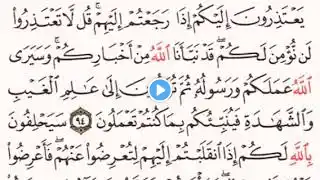 يَعْتَذِرُونَ إِلَيْكُمْ إِذَا رَجَعْتُمْ إِلَيْهِمْ ۚ قُل لَّا تَعْتَذِرُوا۟
لَن نُّؤْمِنَ لَكُمْ قَدْ نَبَّأَنَا ٱللَّهُ مِنْ أَخْبَارِكُمْ ۚ وَسَيَرَى
ٱللَّهُ عَمَلَكُمْ وَرَسُولُهُۥ ثُمَّ إِلَىٰ عَٰلِمِ ٱلْغَيْبِ
وَٱلشَّهَٰدَةِ فَيُنَبِّئُكُم بِمَا كُنتُمْ تَعْمَلُونَ ٩٤ سَيَحْلِفُونَ
بِٱللَّهِ لَكُمْ إِذَا ٱنقَلَبْتُمْ إِلَيْهِمْ لِتُعْرِضُوا۟ عَنْهُمْ ۖ فَأَعْرِضُوا۟